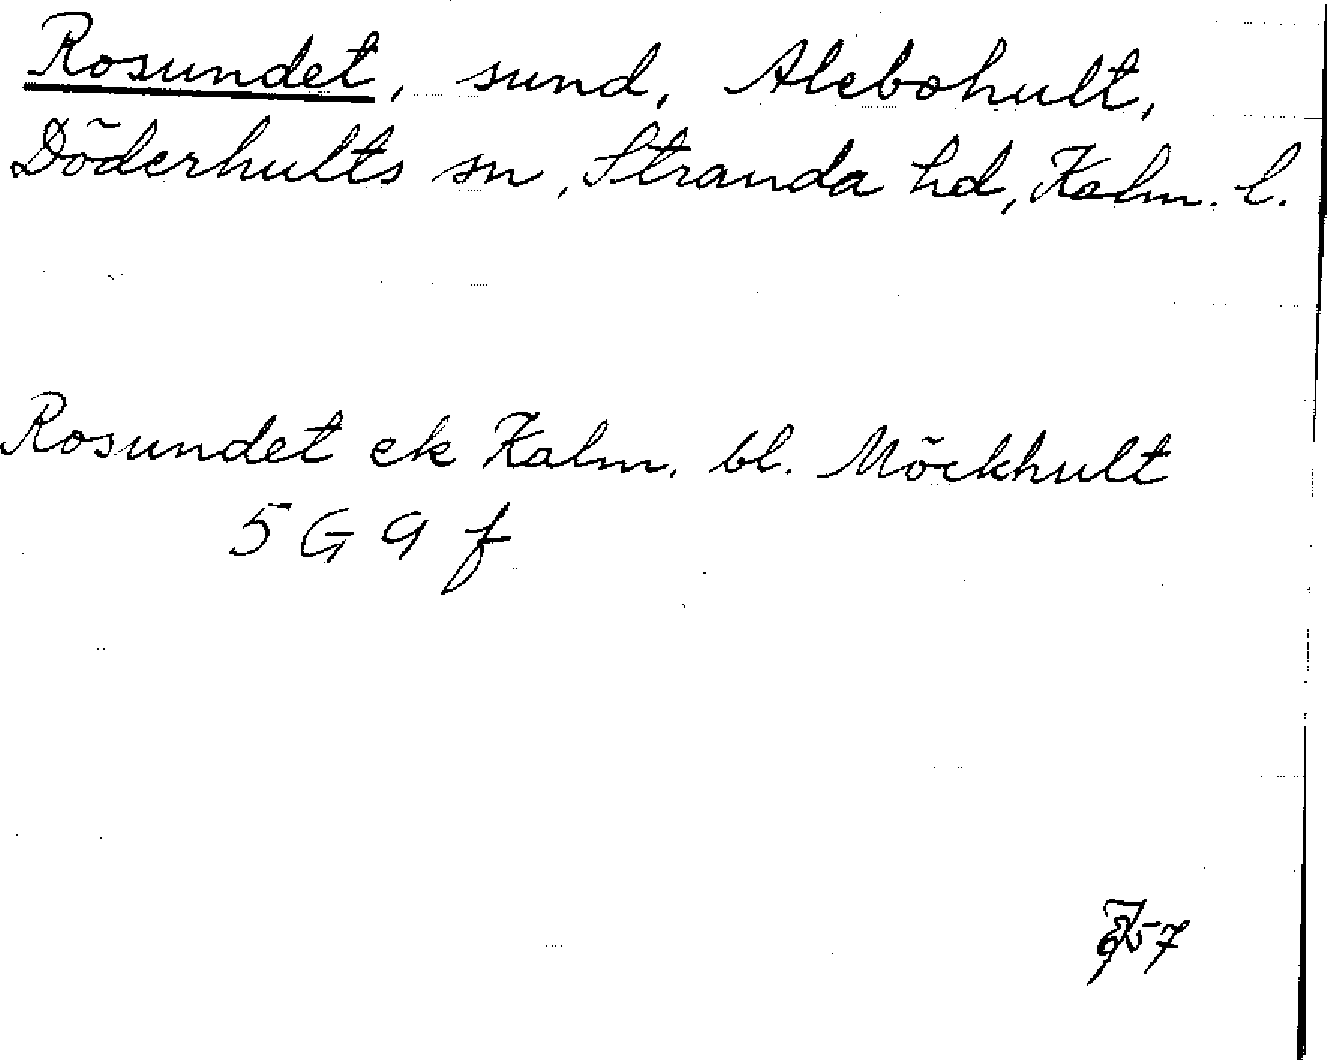 Rosundet, sund, Alebohult,
Döderhults sn, Stranda hd, Kalm. l.
Rosundet ek Kalm. bl. Möckhult
5 G 9 f